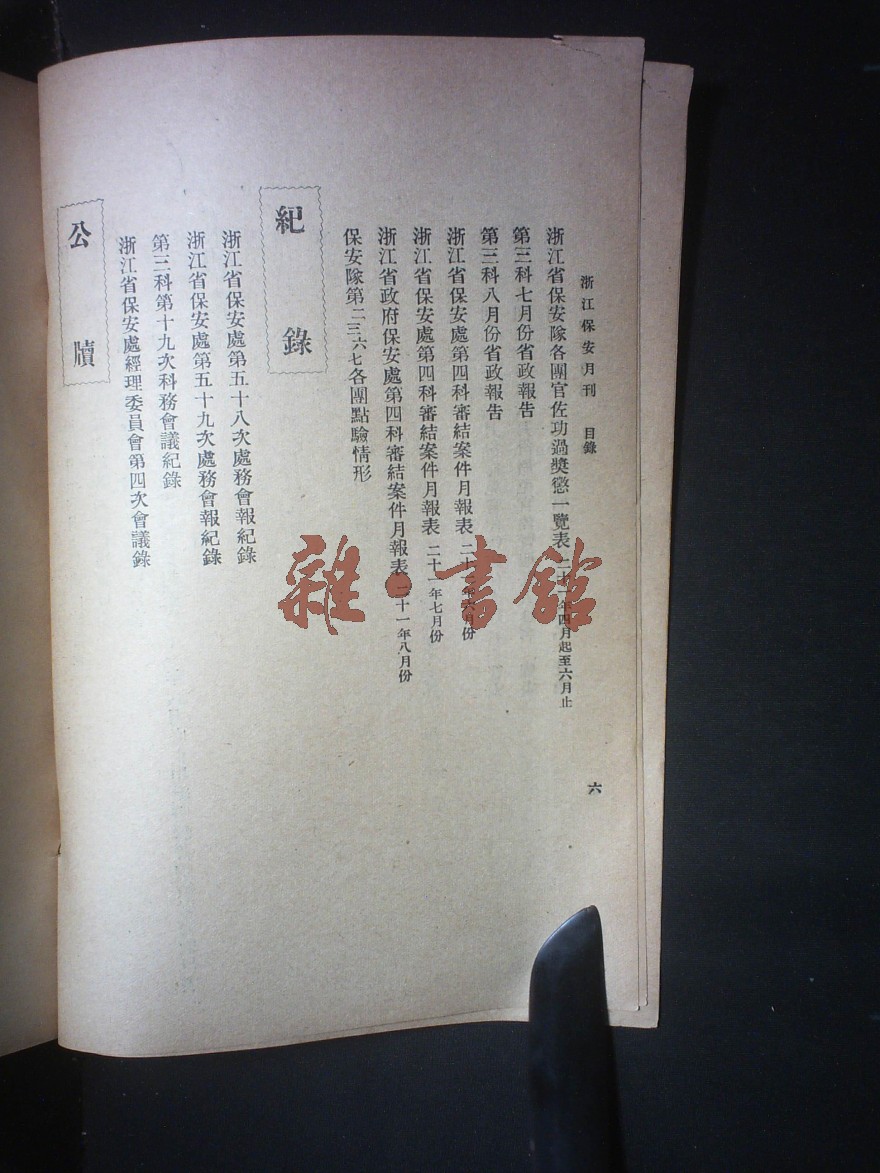 浙江保安月刊 目錄
六
浙江省保安隊各團官佐功過獎懲一覽表 二十一年四月起至六月止
第三科七月份省政報告
第三科八月份省政報告
浙江省保安處第四科審結案件月報表 二十一年六月份
浙江省保安處第四科審結案件月報表 二十一年七月份
浙江省政府保安處第四科審結案件月報表 二十一年八月份
保安隊第二三六七各團點驗情形
紀錄
浙江省保安處第五十八次處務會報紀錄
浙江省保安處第五十九次處務會報紀錄
第三科第十九次科務會議紀錄
浙江省保安處經理委員會第四次會議錄
公牘
雜·書館